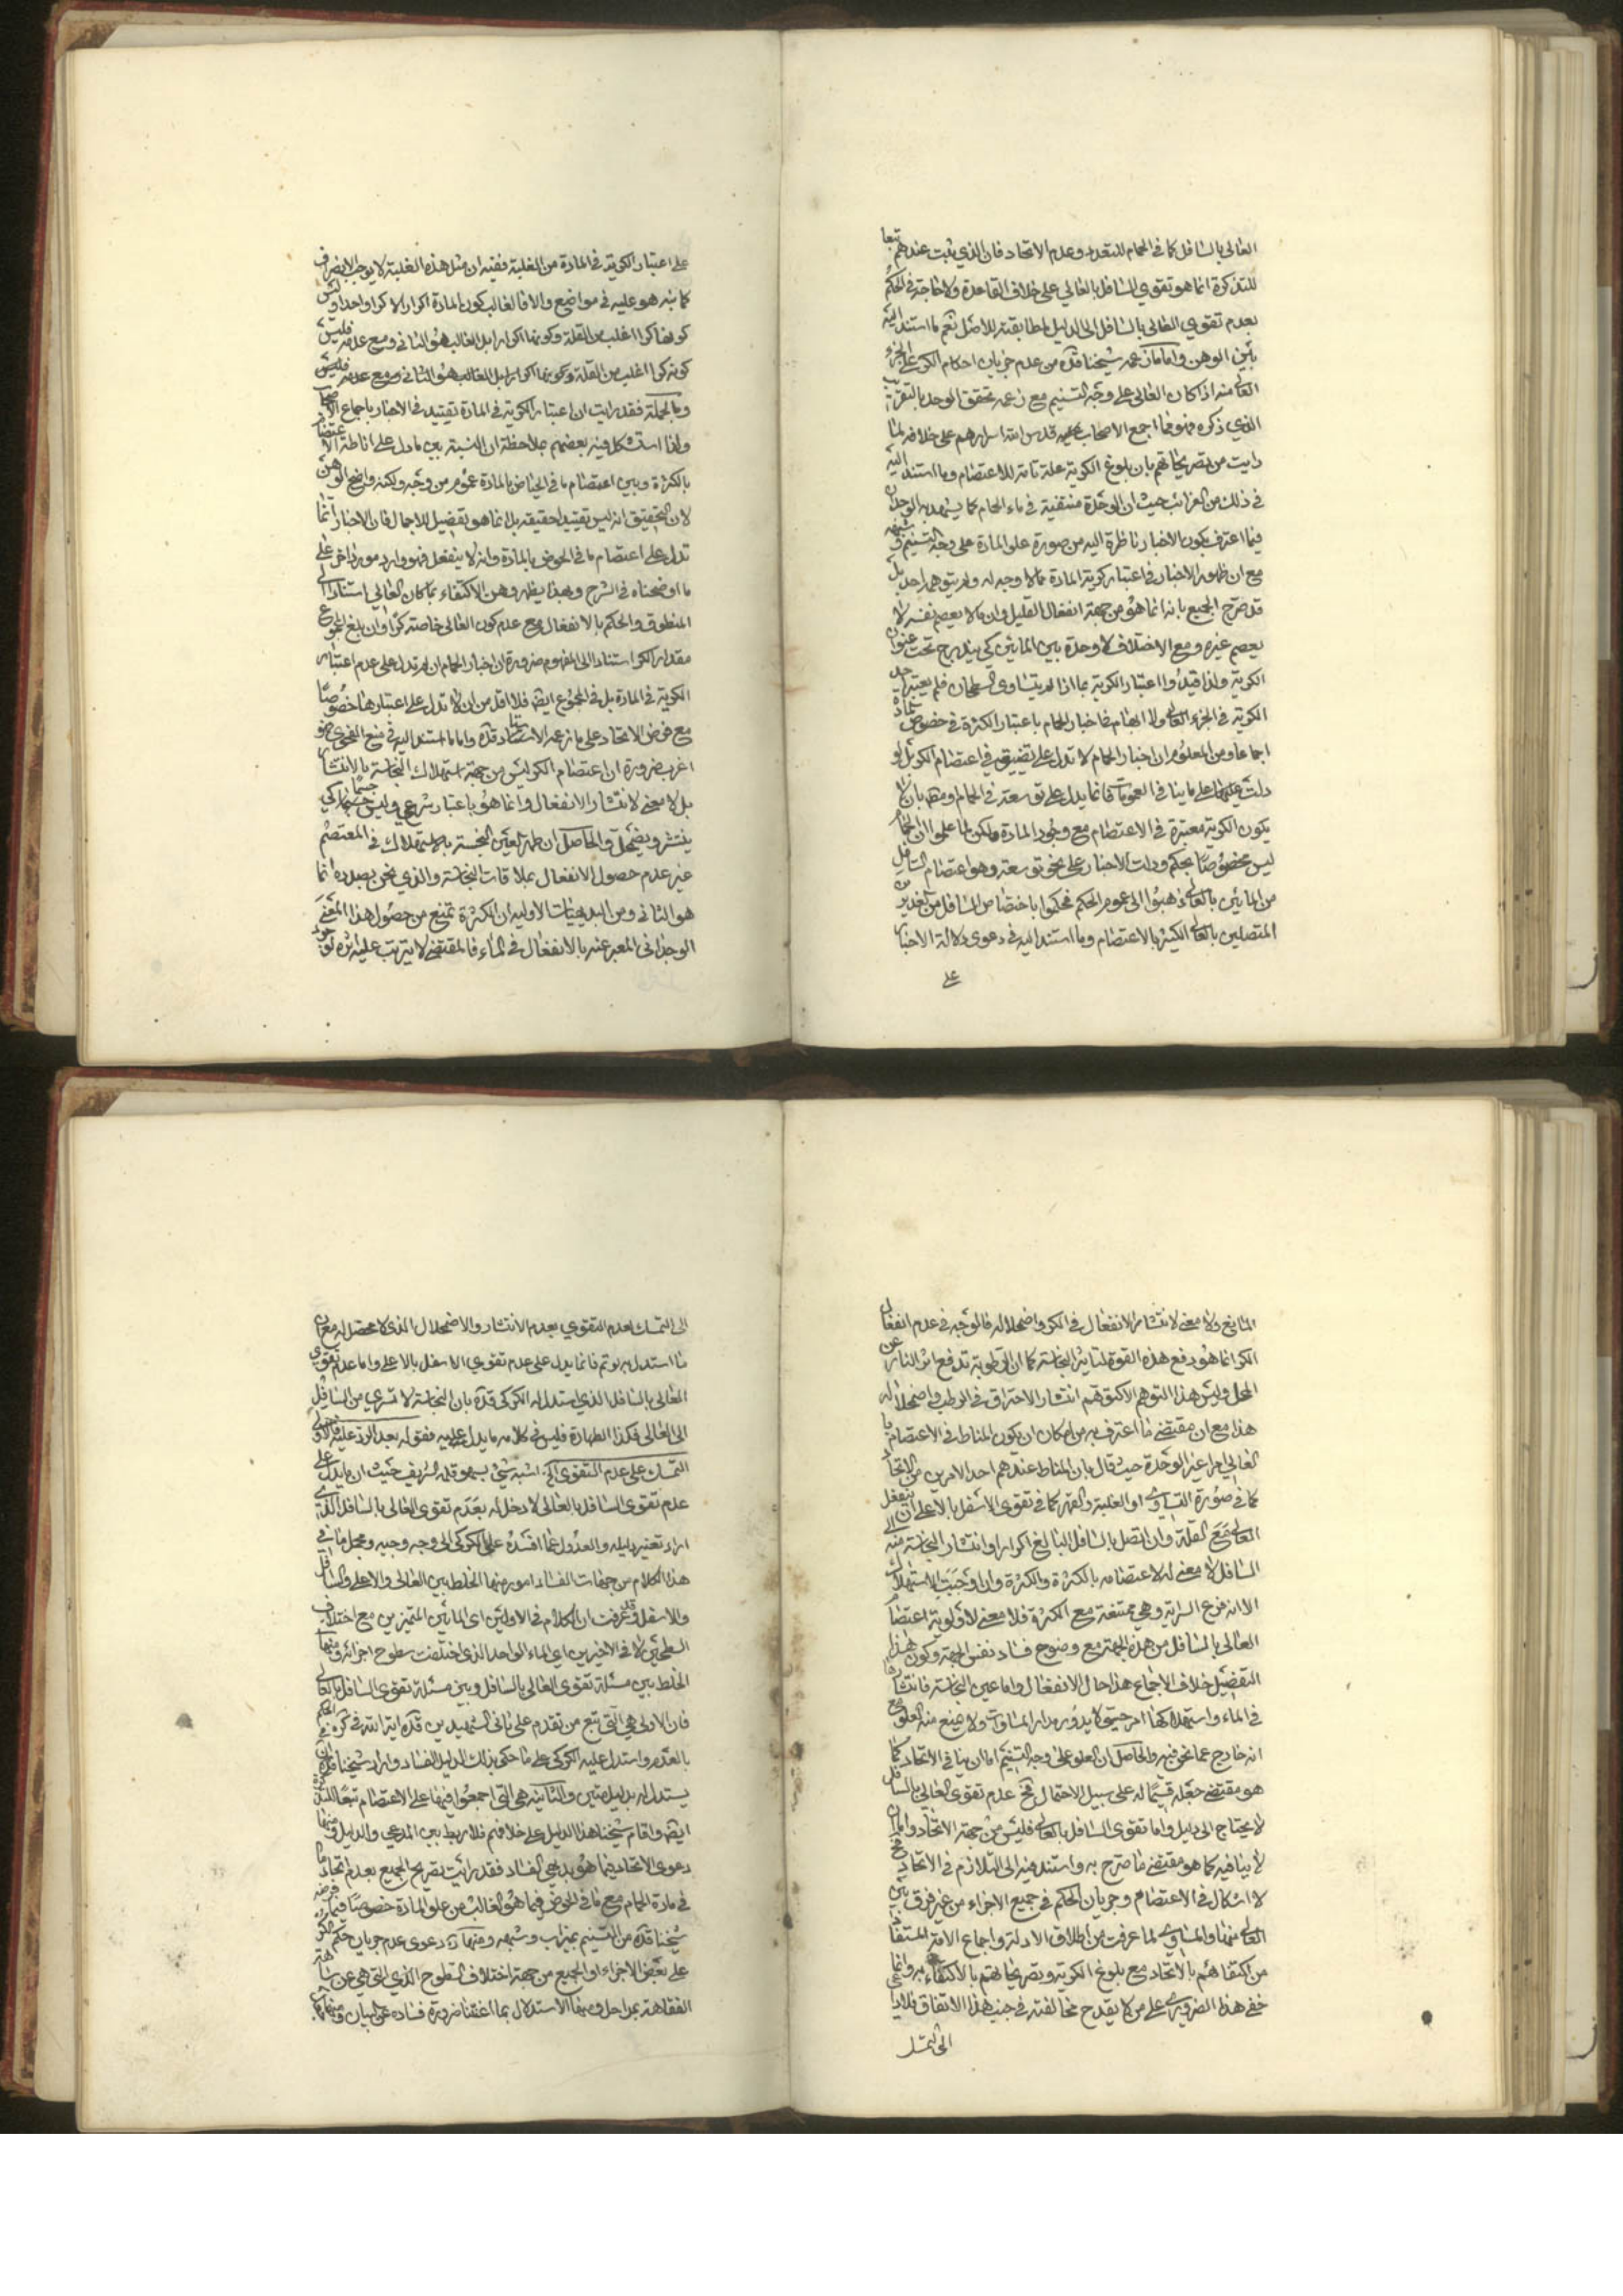 العالي بالسافل كما في الحمام للتعدد وعدم الاتحاد فان الذي ثبت عندهم تبعا
للتذكرة انما هو تقوي السافل بالعالي على خلاف القاعدة ولا حاجة في الحكم
بعدم تقوي العالي بالسافل الى الدليل لمطابقته للاصل نعم ما استند اليه
بيّن الوهن واما ما زعمه شيخنا قده من عدم جريان احكام الكر على الجزء
العالي منه اذا كان العالي على وجه التسنيم مع زعمه تحقق الوحدة بالتقريب
الذي ذكره فهو فما اجمع الاصحاب عليه قدس الله اسرارهم على خلافه لما
رايت من تصريحاتهم بان بلوغ الكرية علة تامة للاعتصام وما استند اليه
في ذلك من الغرائب حيث ان الوحدة منتفية في ماء الحمام كما يشهد به الوجدان
فيما اعترف بكون الاخبار ناظرة اليه من صورة علو المادة على وجه التسنيم وشبهه
مع ان ظهور الاخبار في اعتبار كرية المادة مما لا وجه له ولم يتوهمه احد بل
قد صرح الجميع بانه انما هو من جهة انفعال القليل وان ما لا يعصم نفسه لا
يعصم غيره ومع الاختلاف لا وحدة بين المائين كي يندرج تحت عنوان
الكرية ولذا قيدوا اعتبار الكرية بما اذا لم يتساوى السطحان فلم يعتبر احد
الكرية في الجزء العالي ولا ابهام في اخبار الحمام باعتبار الكثرة في خصوص المادة
اجماعا ومن المعلوم ان اخبار الحمام لا تدل على تضييق في اعتصام الكر بل لو
دلت على ما ينافي العمومات فانما يدل على توسعة في الحمام ومنه بان لا
يكون الكرية معتبرة في الاعتصام مع وجود المادة ولكن لما علموا ان الحمام
ليس مخصوصا بحكم ودلت الاخبار على نحو توسعة وهو اعتصام السافل
من المائين بالعالي ذهبوا الى عموم الحكم فحكموا باختصاص السافل من الغديرين
المتصلين بالعالي الكثير بالاعتصام وما استند اليه في دعوى دلالة الاخبار
على
على اعتبار الكرية في المادة من الغلبة ففيه ان مثل هذه الغلبة لا يوجب الانصراف
كما نبه هو عليه في مواضع والا فالغالب كون المادة اكرارا لا كرا واحدا وليس
كونها كرا اغلب من القلة وكونها اكرارا بل الغالب هو الثاني ومع عدمه فليس
كونه كرا اغلب من القلة وكونها اكرارا بل الغالب هو الثاني ومع عدمه فليس
وبالجملة فقد رايت ان اعتبار الكرية في المادة تقييد في الاخبار باجماع الاصحاب
ولذا استشكل فيه بعضهم بملاحظة ان النسبة بين ما دل على اناطة الاعتصام
بالكثرة وبين اعتصام ما في الحياض بالمادة عموم من وجه ولكنه واضح الوهن
لان التحقيق انه ليس تقييدا حقيقة بل انما هو تفصيل للاجمال فان الاخبار انما
تدل على اعتصام ما في الحوض بالمادة وانه لا ينفعل فهو وارد مورد اخر على
ما اوضحناه في الشرح وبهذا يظهر وهن الاكتفاء بما كان العالي استنادا الى
المنطوق والحكم بالانفعال مع عدم كون العالي خاصة كرا وان بلغ المجموع
مقدار الكر استنادا الى المفهوم ضرورة ان اخبار الحمام ان لم تدل على عدم اعتبار
الكرية في المادة بل في المجموع ايضا فلا اقل من ان لا تدل على اعتبارها خصوصا
مع فرض الاتحاد على ما زعمه الاستاد قده واما ما استند اليه في منع الفحوى فهو
اغرب ضرورة ان اعتصام الكر ليس من جهة استهلاك النجاسة بالانتشار
بل لا معنى لانتشار الانفعال وانما هو باعتبار شرعي وليس جسما كي
ينتشر ويضمحل والحاصل ان طهر العين النجسة بالاستهلاك في المعتصم
غير عدم حصول الانفعال بملاقات النجاسة والذي نحن بصدده انما
هو الثاني ومن البديهيات الاولية ان الكثرة تمنع من حصول هذا المعنى
الوجداني المعبر عنه بالانفعال في الماء فالمقتضي لا يترتب عليه اثره لوجود
المانع ولا معنى لانتشار الانفعال في الكر واضمحلاله فالوجه في عدم انفعال
الكر انما هو دفع هذه القوة لتاثير النجاسة كما ان الرطوبة تدفع اثر النار عن
المحل وليس هذا التوهم الا كتوهم انتشار الاحتراق في الرطب واضمحلاله
هذا مع ان مقتضى ما اعترف به من امكان ان يكون المناط في الاعتصام بالعالي
امرا غير الوحدة حيث قال بان المناط عندهم احد الامرين من الاتحاد
كما في صورة التساوي او الغلبة والقهر كما في تقوي الاسفل بالاعلى ان ينفعل
العالي مع القلة وان اتصل بالسافل البالغ اكرارا وانتشار النجاسة منه الى
السافل لا معنى له لاعتصامه بالكثرة والكثرة وان اوجبت الاستهلاك
الا انه فرع السراية وهي ممتنعة مع الكثرة فلا معنى لاولوية اعتصام
العالي بالسافل من هذه الجهة مع وضوح فساد نفس الجهة وكون هذا
التفصيل خلاف الاجماع هذا حال الانفعال واما عين النجاسة فانتشارها
في الماء واستهلاكها امر حقيقي لا يدور مدار المساوات ولا يمنع منه العلو مع
انه خارج عما نحن فيه والحاصل ان العلو على وجه التسنيم اما ان ينافي الاتحاد كما
هو مقتضى جعله قسيما له على سبيل الاحتمال فح عدم تقوي العالي بالسافل
لا يحتاج الى دليل واما تقوي السافل بالعالي فليس من جهة الاتحاد واما ان
لا ينافيه كما هو مقتضى ما صرح به واستند فيه الى التلازم في الاتحاد فح
لا اشكال في الاعتصام وجريان الحكم في جميع الاجزاء من غير فرق بين
العالي منها والمساوي لما عرفت من اطلاق الادلة واجماع الامة المستفاد
من اكتفائهم بالاتحاد مع بلوغ الكرية وتصريحاتهم بالاكتفاء به وانما
خفي هذا الضروري على من لا يقدح مخالفته في جنب هذا الاتفاق فلا داعي
الى التمسك
الى التمسك لعدم التقوي بعدم الانتشار والاضمحلال الذي لا محصل له مع ان
ما استدل به لو تم فانما يدل على عدم تقوي الاسفل بالاعلى واما عدم تقوي
العالي بالسافل الذي استدل له الكركي قده بان النجاسة لا تسري من السافل
الى العالي فكذا الطهارة فليس في كلامه ما يدل عليه فقوله بعد الرد عليه فالاولى
التمسك على عدم التقوي الخ اشبه شيء بسهو قلمه الشريف حيث ان ما يدل على
عدم تقوى السافل بالعالي لا دخل له بعدم تقوى العالي بالسافل الذي
اراد تغيير دليله والعدول عما افسده على الكركي الى وجه وجيه ومجمل ما في
هذا الكلام من جهات الفساد امور منها الخلط بين العالي والاعلى والسافل
والاسفل وقد عرفت ان الكلام في الاولين اي المائين المتميزين مع اختلاف
السطحين لا في الاخيرين اي الماء الواحد الذي اختلفت سطوح اجزائه ومنها
الخلط بين مسئلة تقوى العالي بالسافل وبين مسئلة تقوى السافل بالعالي
فان الاولى هي التي تبع من تقدم على ثاني الشهيدين قده اية الله في كره في الحكم
بالعدم واستدل عليه الكركي على ما حكى بذلك الدليل الفساد واراد شيخنا قده ان
يستدل له بدليل متين والثانية هي التي اجمعوا فيها على الاعتصام تبعا للتذكرة
ايضا واقام شيخنا هذا الدليل على خلافهم فلا ربط بين المدعي والدليل ومنها
دعوى الاتحاد فيما هو بديهي الفساد فقد رايت تصريح الجميع بعدم اتحاد ما
في مادة الحمام مع ما في الحوض فيما هو الغالب من علو المادة خصوصا فيما فرضه
شيخنا قده من التسنيم بميزاب وشبهه ومنها دعوى عدم جريان حكم الكر
على بعض الاجزاء او الجميع من جهة اختلاف السطوح الذي التي هي عن ساهة
الفقاهة بمراحل ومنها الاستدلال بما اغنتنا ضرورة فساده عن البيان ومنها